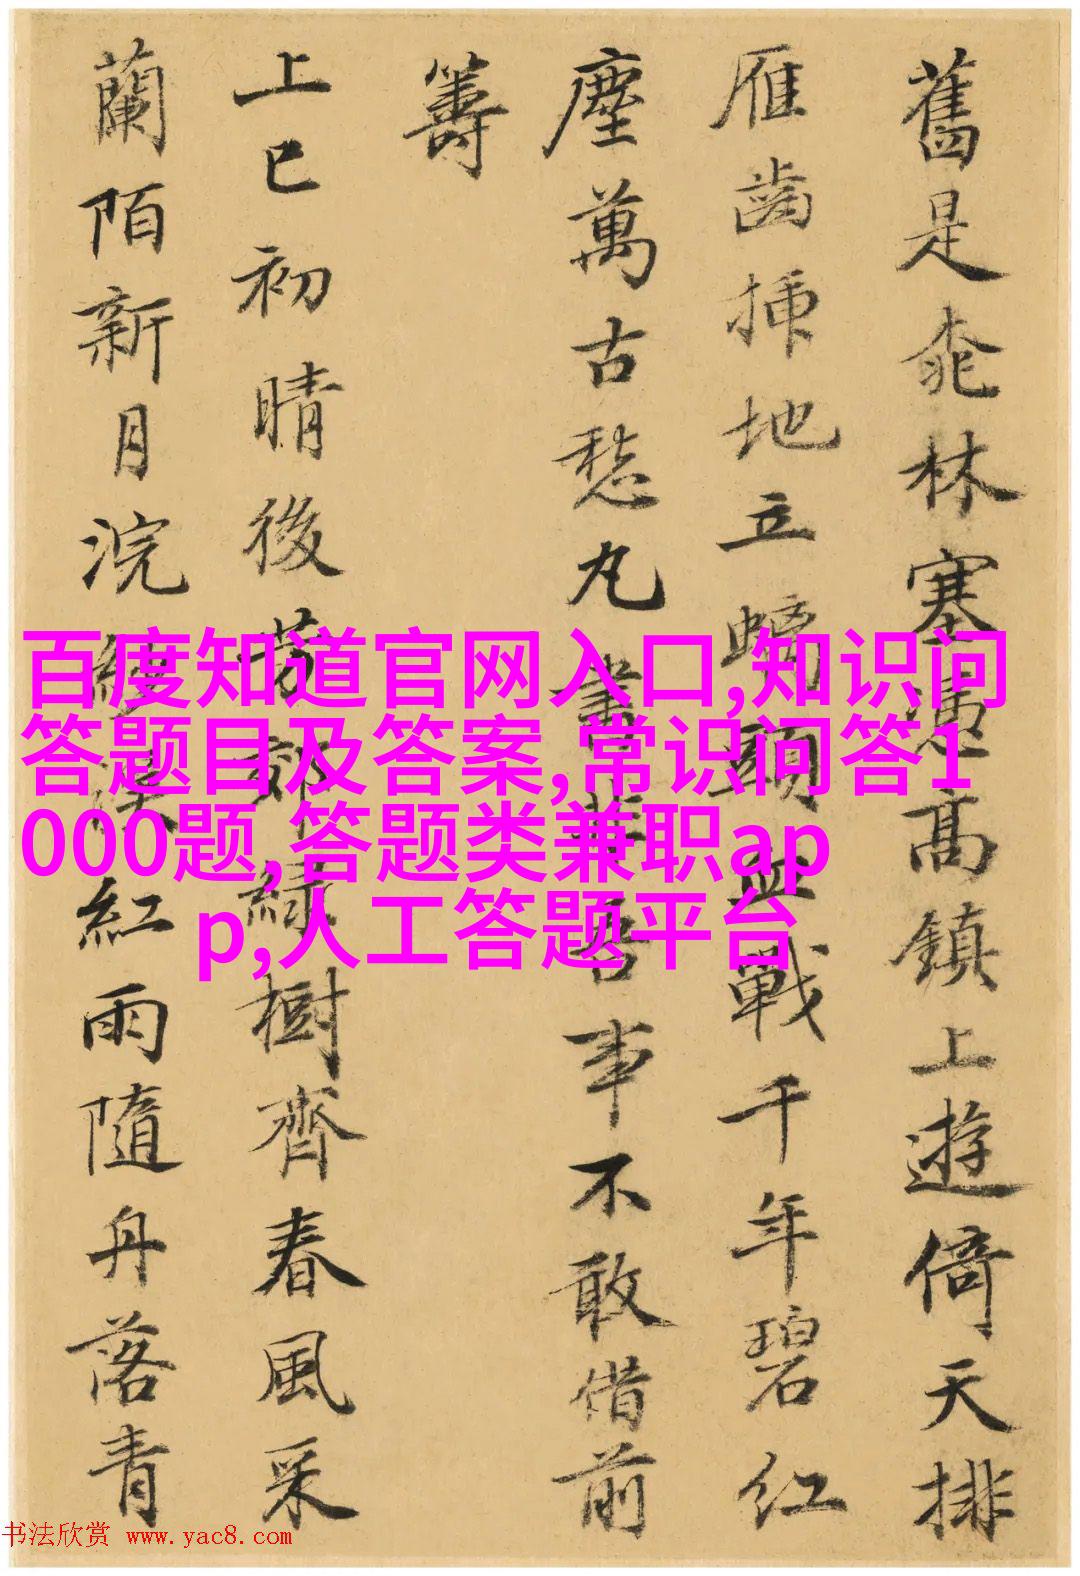 舊是桃林塞憑高鎮上遊倚天排
雁齒插地立螭頭血戰千年碧紅
塵萬古愁丸書非吾事不敢借前
籌
上巳初晴後芳郊緑樹齊春風采
蘭陌新月浣紗溪紅雨隨舟落青
百度知道官网入口,知识问
答题目及答案,常识问答1
000题,答题类兼职ap
p,人工答题平台
书法欣赏 www.yac8.com